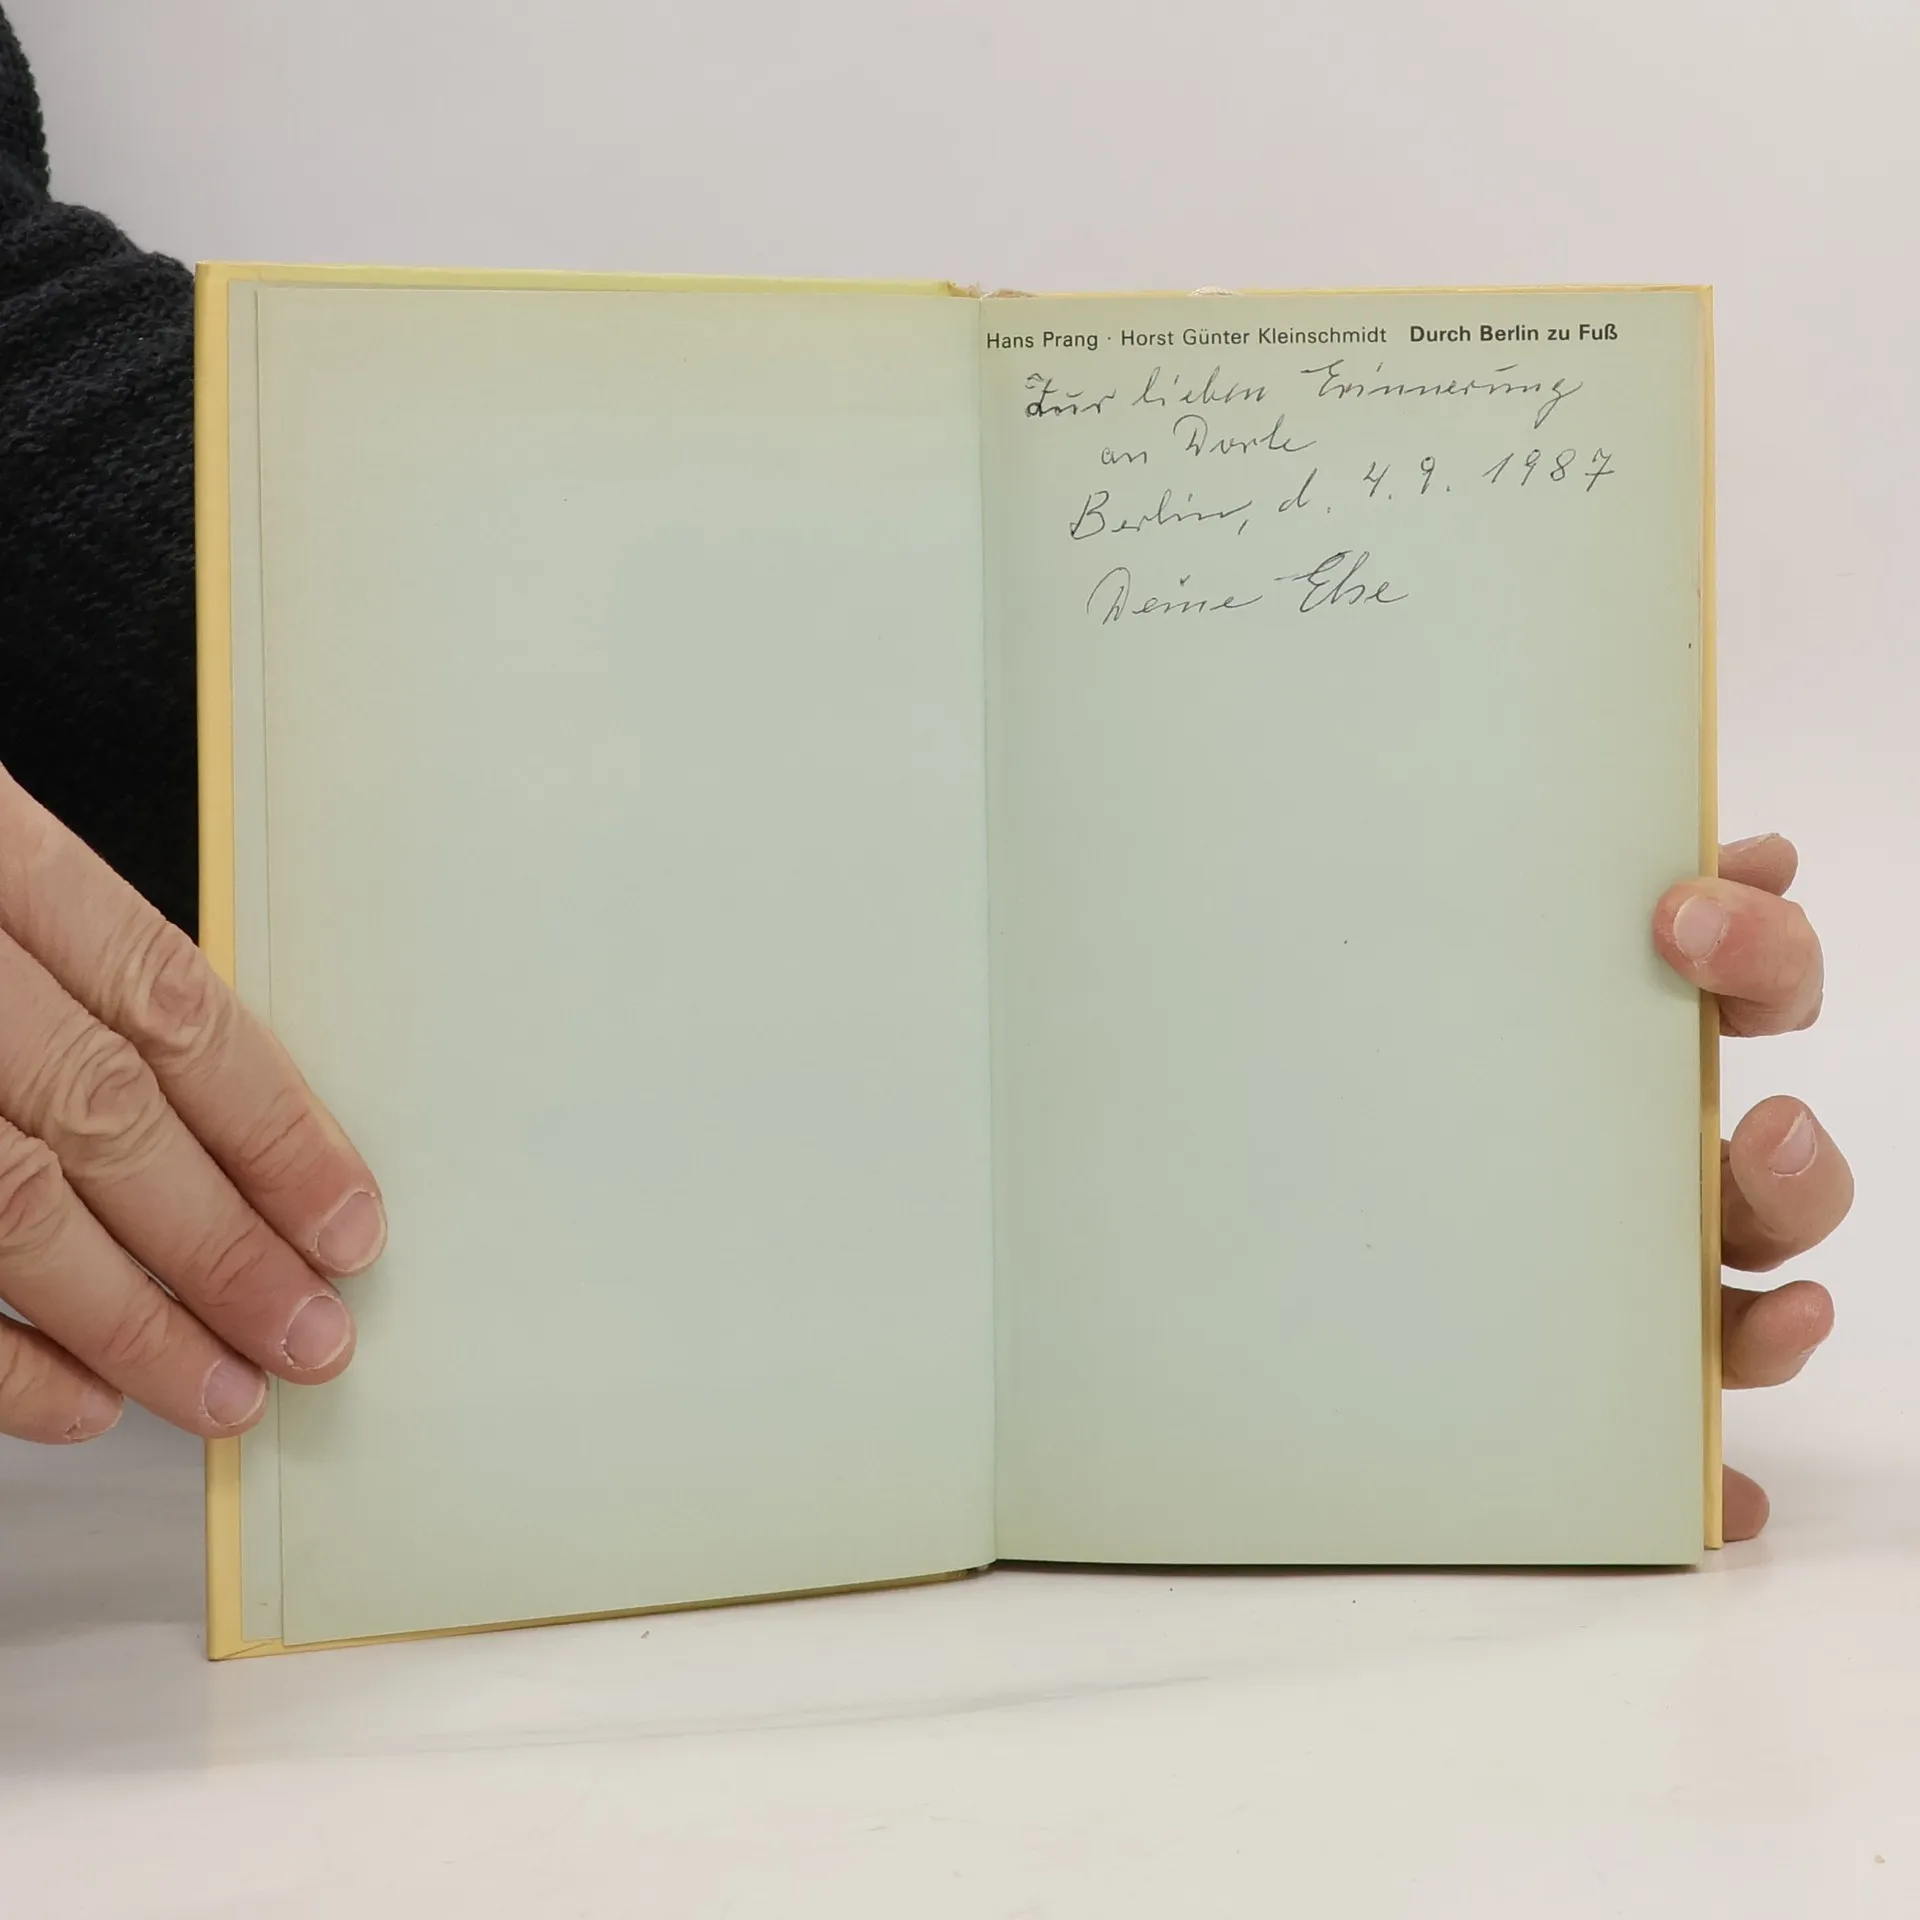 Hans Prang · Horst Günter Kleinschmidt Durch Berlin zu Fuß
Zur lieben Erinnerung
an Dorle
Berlin, d. 4. 9. 1987
Deine Else